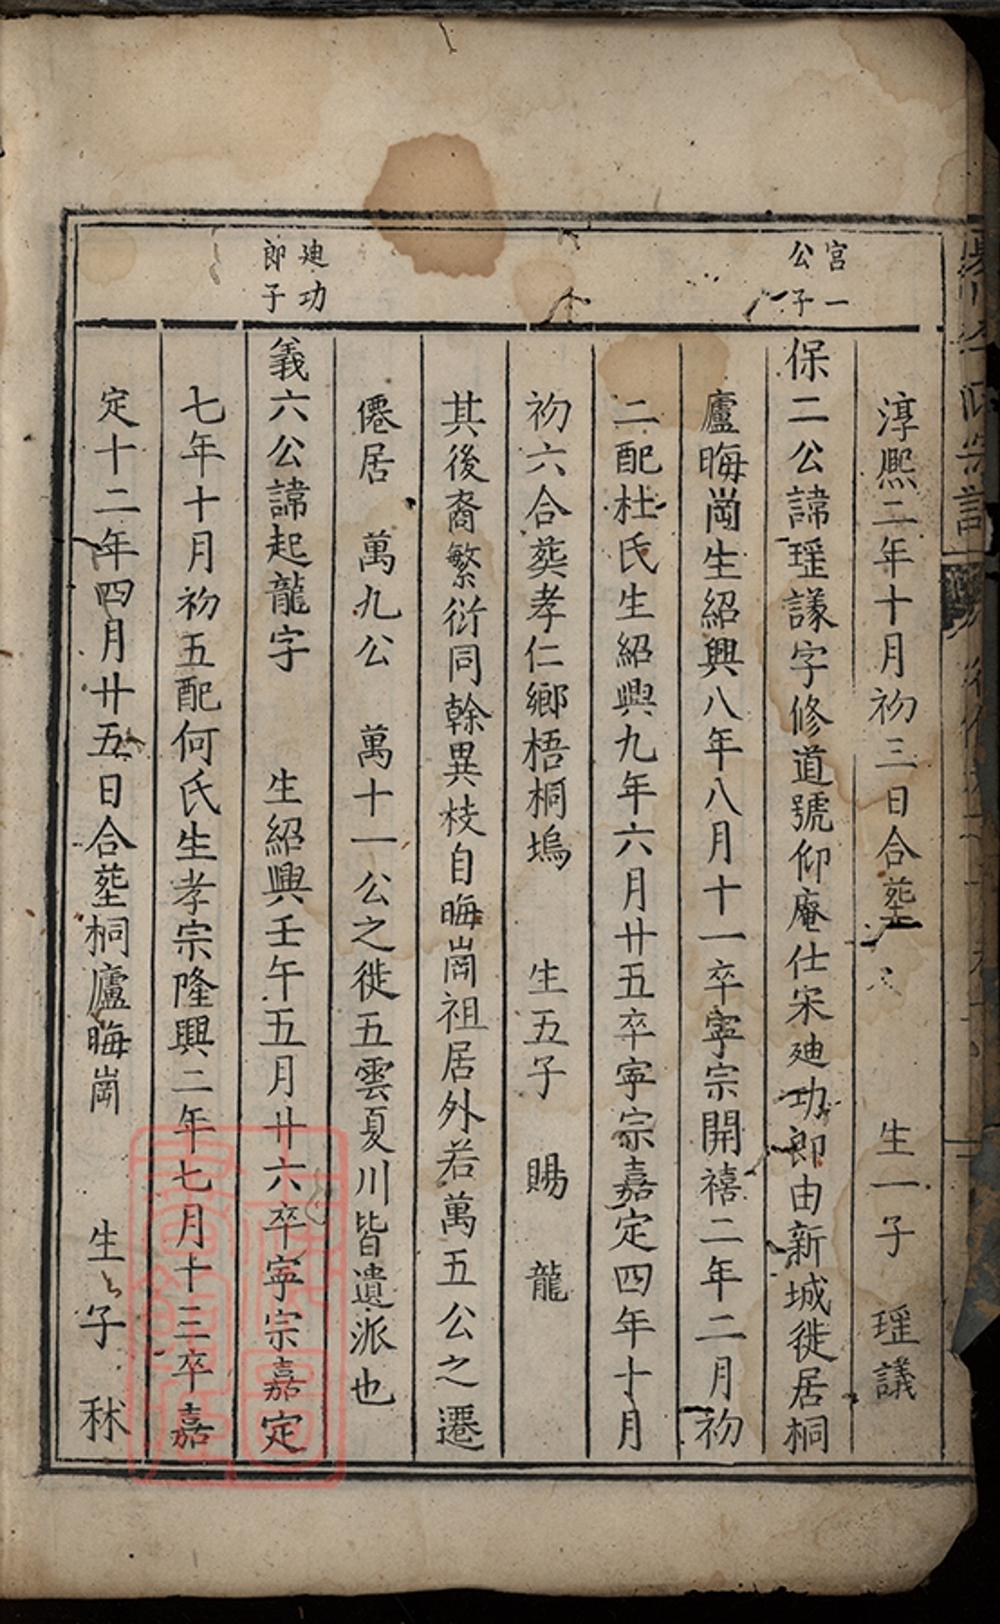 宮一公子
淳熙二年十月初三日合塟　生一子　瑶議
保二公諱瑶議字修道號仰庵仕宋廸功郎由新城徙居桐
廬晦崗生紹興八年八月十一卒寧宗開禧二年二月初
二配杜氏生紹興九年六月廿五卒寧宗嘉定四年十月
初六合葬孝仁鄉梧桐塢　生五子　賜　龍
其後裔繁衍同幹異枝自晦崗祖居外若萬五公之遷
僊居　萬九公　萬十一公之徙五雲夏川皆遺派也
廸功郎子
義六公諱起龍字　生紹興壬午五月廿六卒寧宗嘉定
七年十月初五配何氏生孝宗隆興二年七月十三卒嘉
定十二年四月廿五日合塟桐廬晦崗　生子　秫